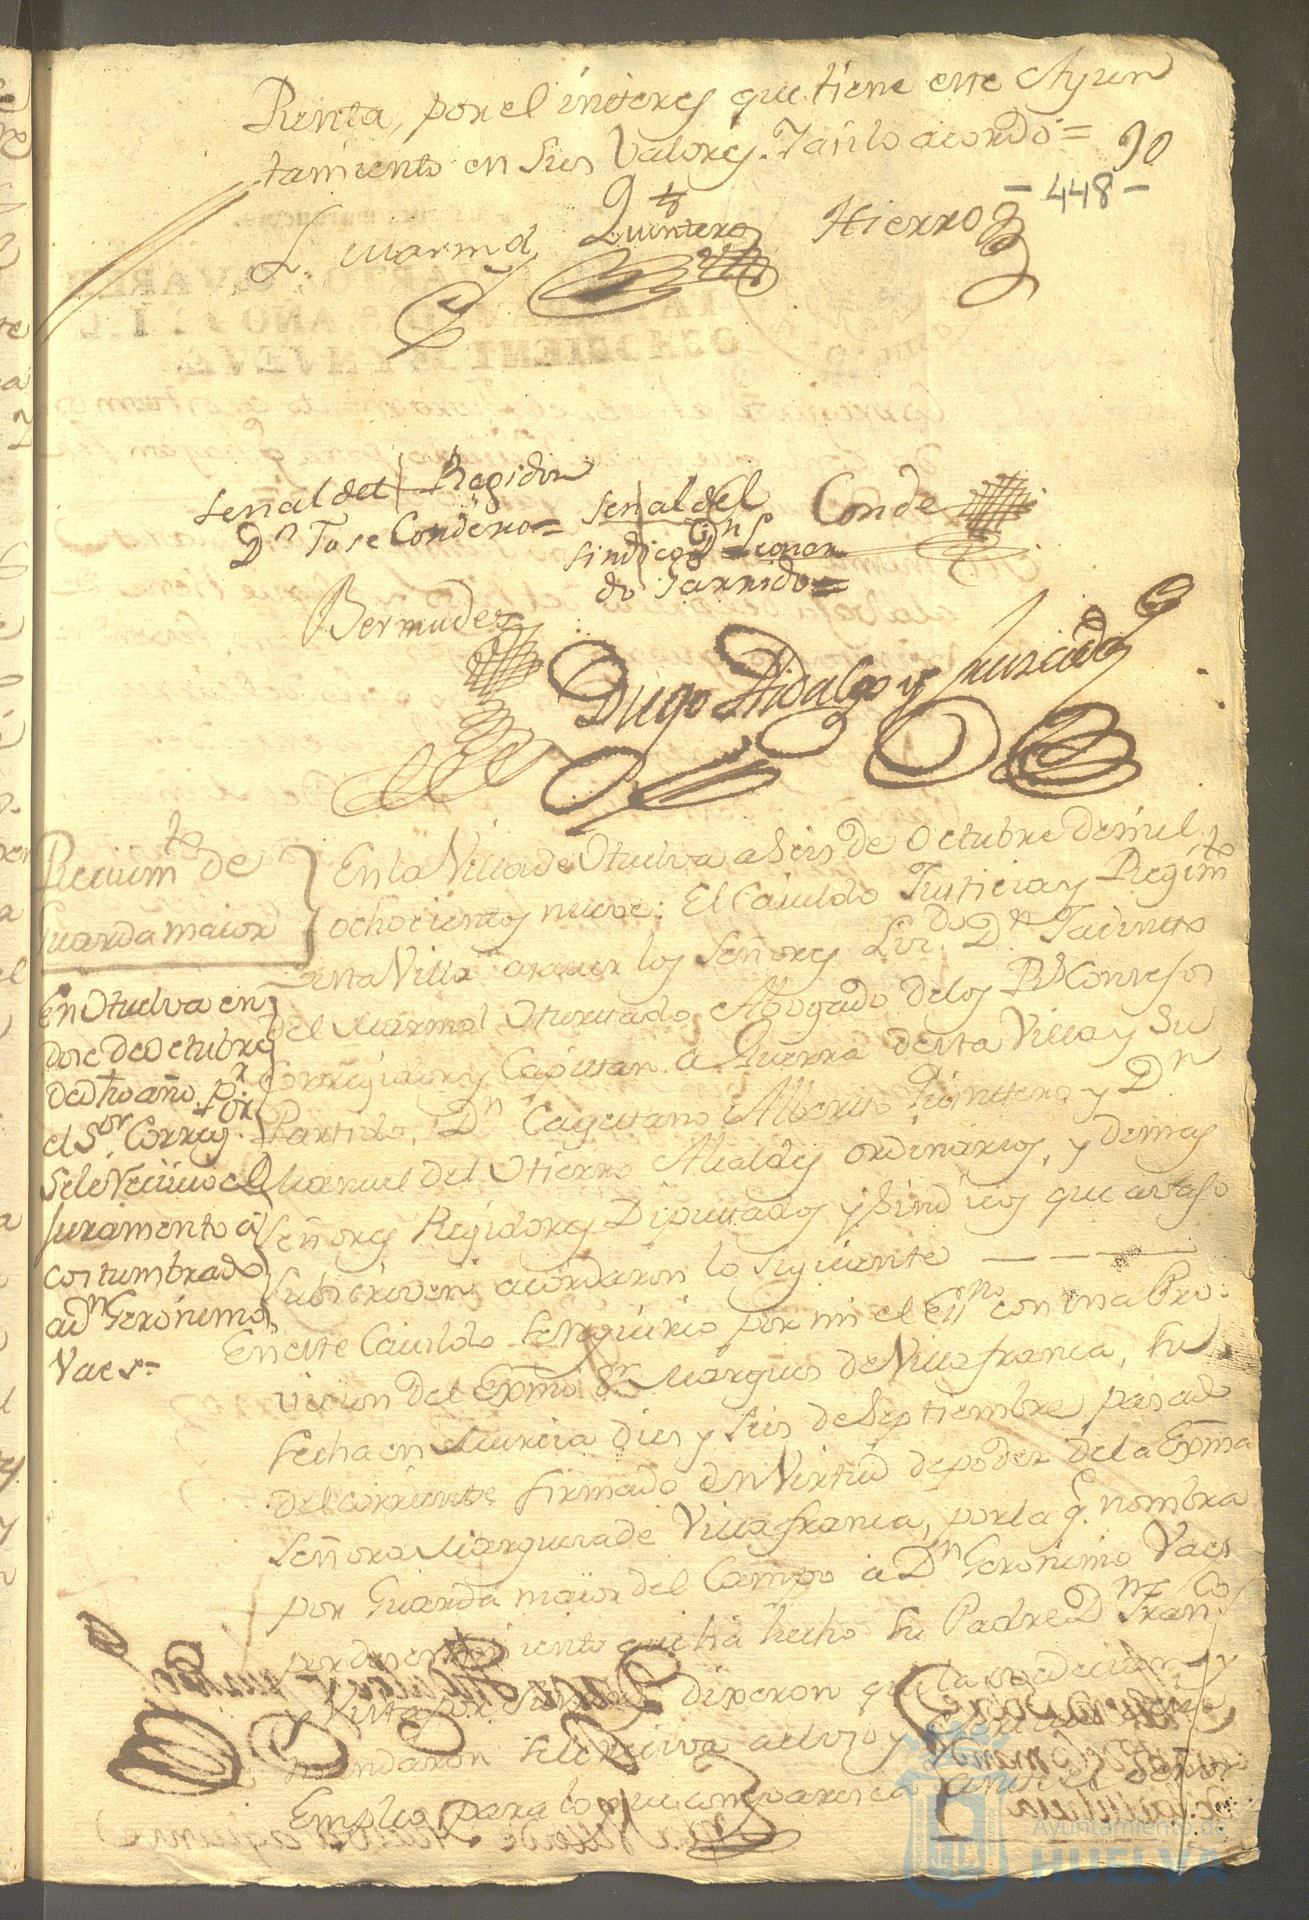 Renta, por el interes que tiene este Ayun
tamiento en sus Valores. Y asi lo acordò =
90
- 448 -
L. Marmol
Quintero
Hierro
señal del Regidor
Dn Jose Cordero =
señal del
sindico Dn Leonar
do Garrido =
Conde
Bermudez
Diego Hidalgo y
Recivimto de
Guarda maior
En la Villa de Huelva a Seis de Octubre de mil
ochocientos nueve: El Cavildo Justicia y Regimto
desta Villa los Señores Licdo Dn Jacinto
del Marmol Hurtado Abogado de los Rs Consejos
Corregidor y Capitan a Guerra desta Villa y Su
Partido, Dn Cayetano Alberto Quintero y Dn
Manuel del Hierro Alcaldes ordinarios, y demas
Señores Regidores Diputados y Sindicos que avaxo
subscriven acordaron lo siguiente
En este Cavildo se por mi el Essno con una Pro-
vision del Exmo Sr Marques de Villafranca, su
fecha en Murcia dies y seis de Septiembre pasado
del corriente firmado en Virtud de poder de la Exma
Señora Marquesa de Villafranca, por la q. nombra
por Guarda maior del Campo à Dn Geronimo Vaes
por que ha hecho su Padre Dn Franco
y Vista por dixeron que la ovedecian y
mandaron se le reciva al uso y
Empleo para lo que comparesca ante el Señor
En Huelva en
dose de Octubre
de dho año pr
el Sor Corregor
se le Recivio el
Juramento a
costumbrado
a dn Geronimo
Vaes =
Ayuntamiento de
HUELVA